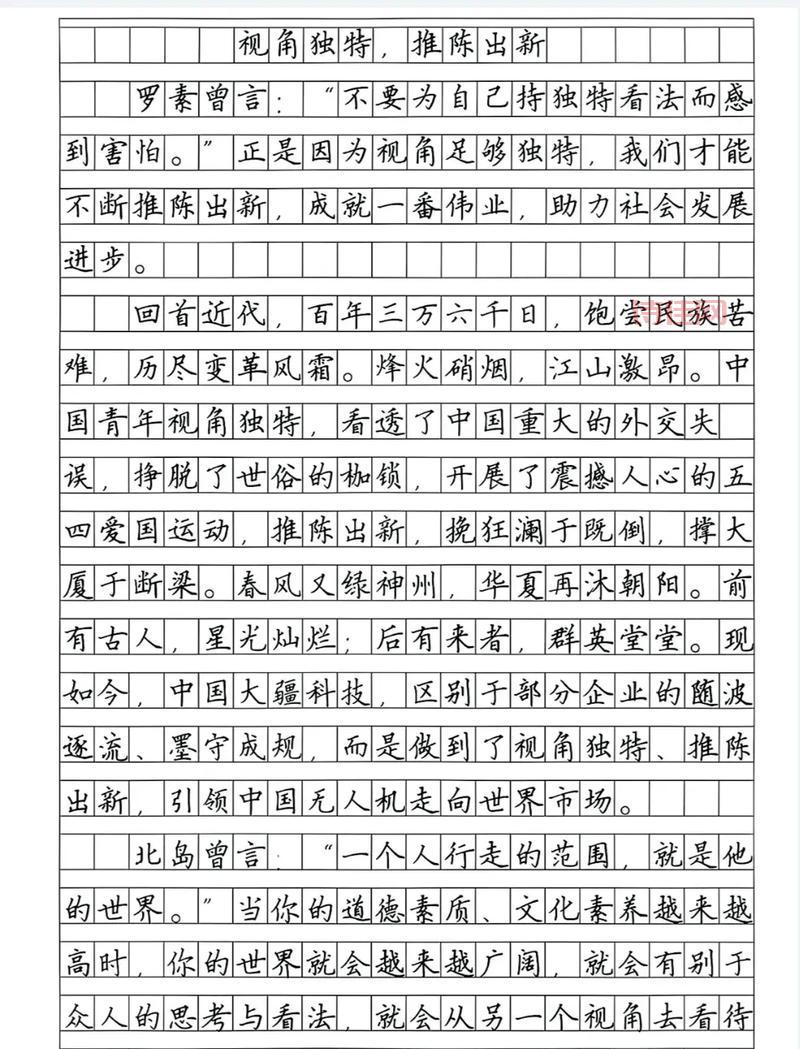 视角独特，推陈出新
罗素曾言：“不要为自己持独特看法而感
到害怕。”正是因为视角足够独特，我们才能
不断推陈出新，成就一番伟业，助力社会发展
进步。
回首近代，百年三万六千日，饱尝民族苦
难，历尽变革风霜。烽火硝烟，江山激昂。中
国青年视角独特，看透了中国重大的外交失
误，挣脱了世俗的枷锁，开展了震撼人心的五
四爱国运动，推陈出新，挽狂澜于既倒，撑大
厦于断梁。春风又绿神州，华夏再沐朝阳。前
有古人，星光灿烂；后有来者，群英堂堂。现
如今，中国大疆科技，区别于部分企业的随波
逐流、墨守成规，而是做到了视角独特、推陈
出新，引领中国无人机走向世界市场。
北岛曾言：“一个人行走的范围，就是他
的世界。”当你的道德素质、文化素养越来越
高时，你的世界就会越来越广阔，就会有别于
众人的思考与看法，就会从另一个视角去看待